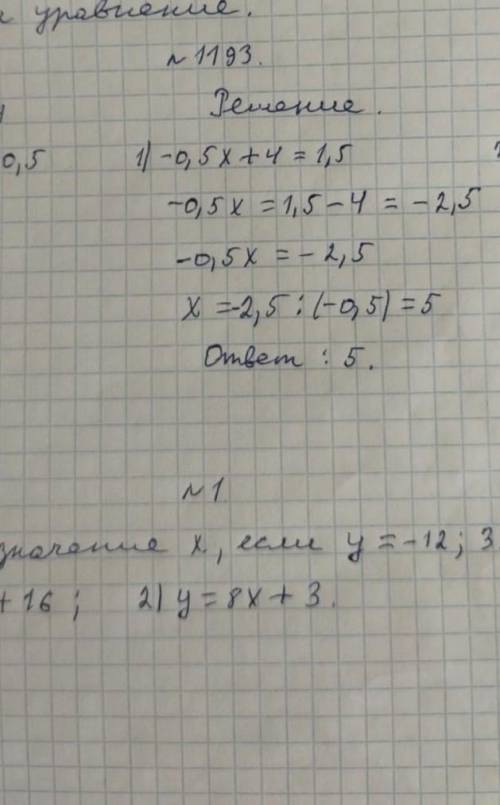 уравнение.
№1193.
Решение.
0,5 1) -0,5x + 4 = 1,5
-0,5x = 1,5 - 4 = - 2,5
-0,5x = - 2,5
x = -2,5 : (-0,5) = 5
Ответ : 5.
№1
значение x, если y = -12; 3
+ 16 ; 2) y = 8x + 3.